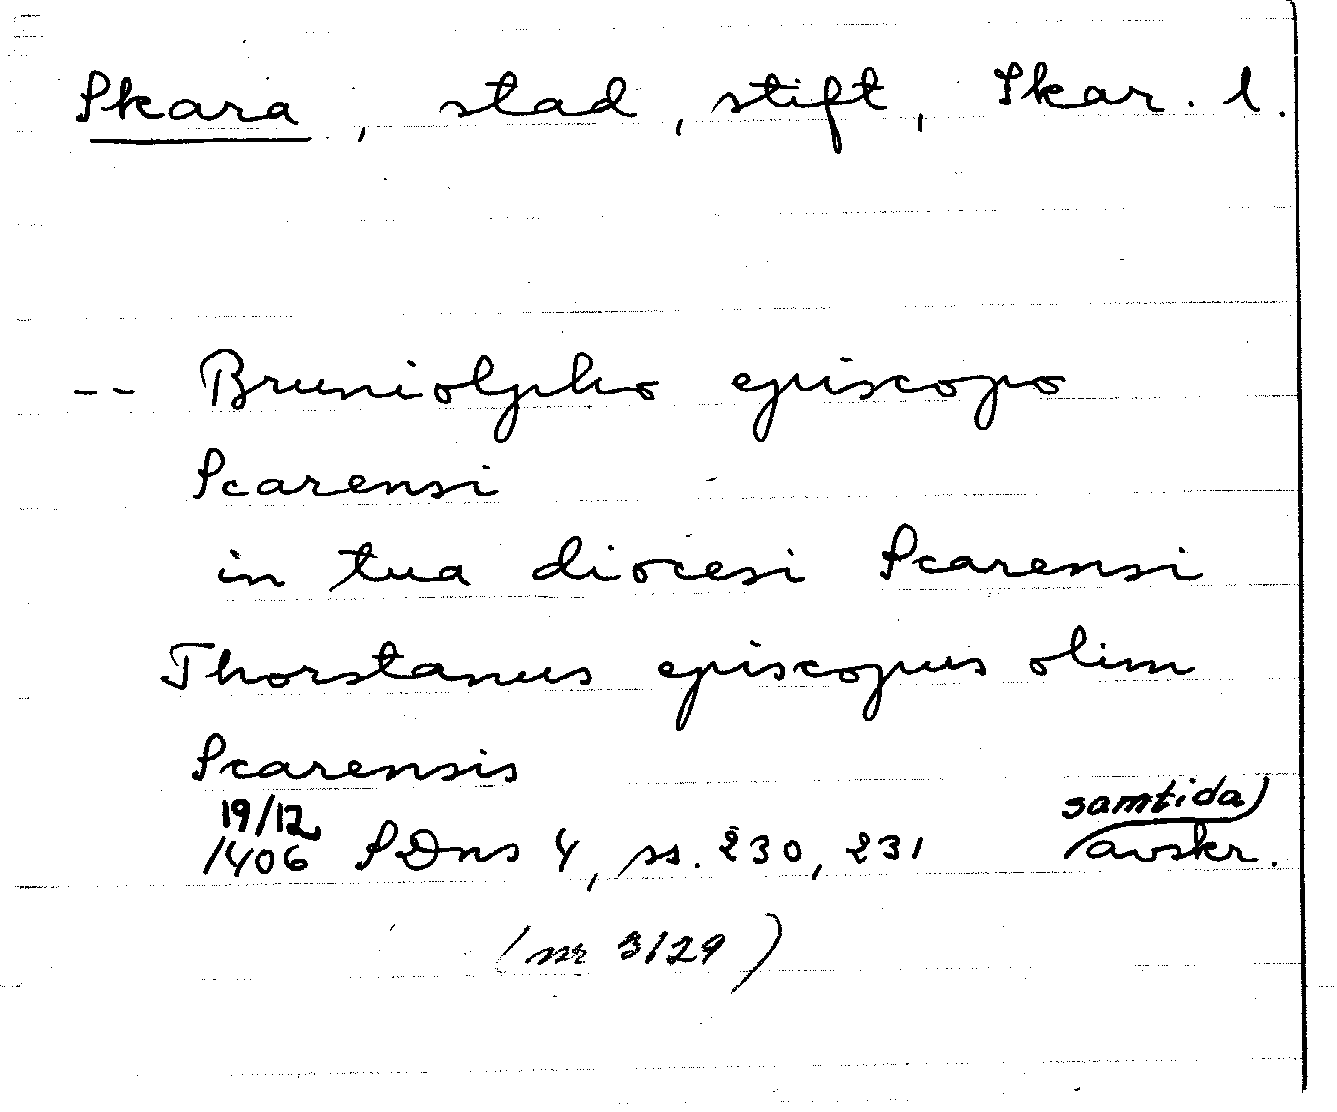 Skara, stad, stift, Skar. l.
-- Bruniolpho episcopo
Scarensi
in tua diocesi Scarensi
Thorstanus episcopus olim
Scarensis
19/12
1406 SDns 4, ss. 230, 231 samtida avskr.
(nr 3129)